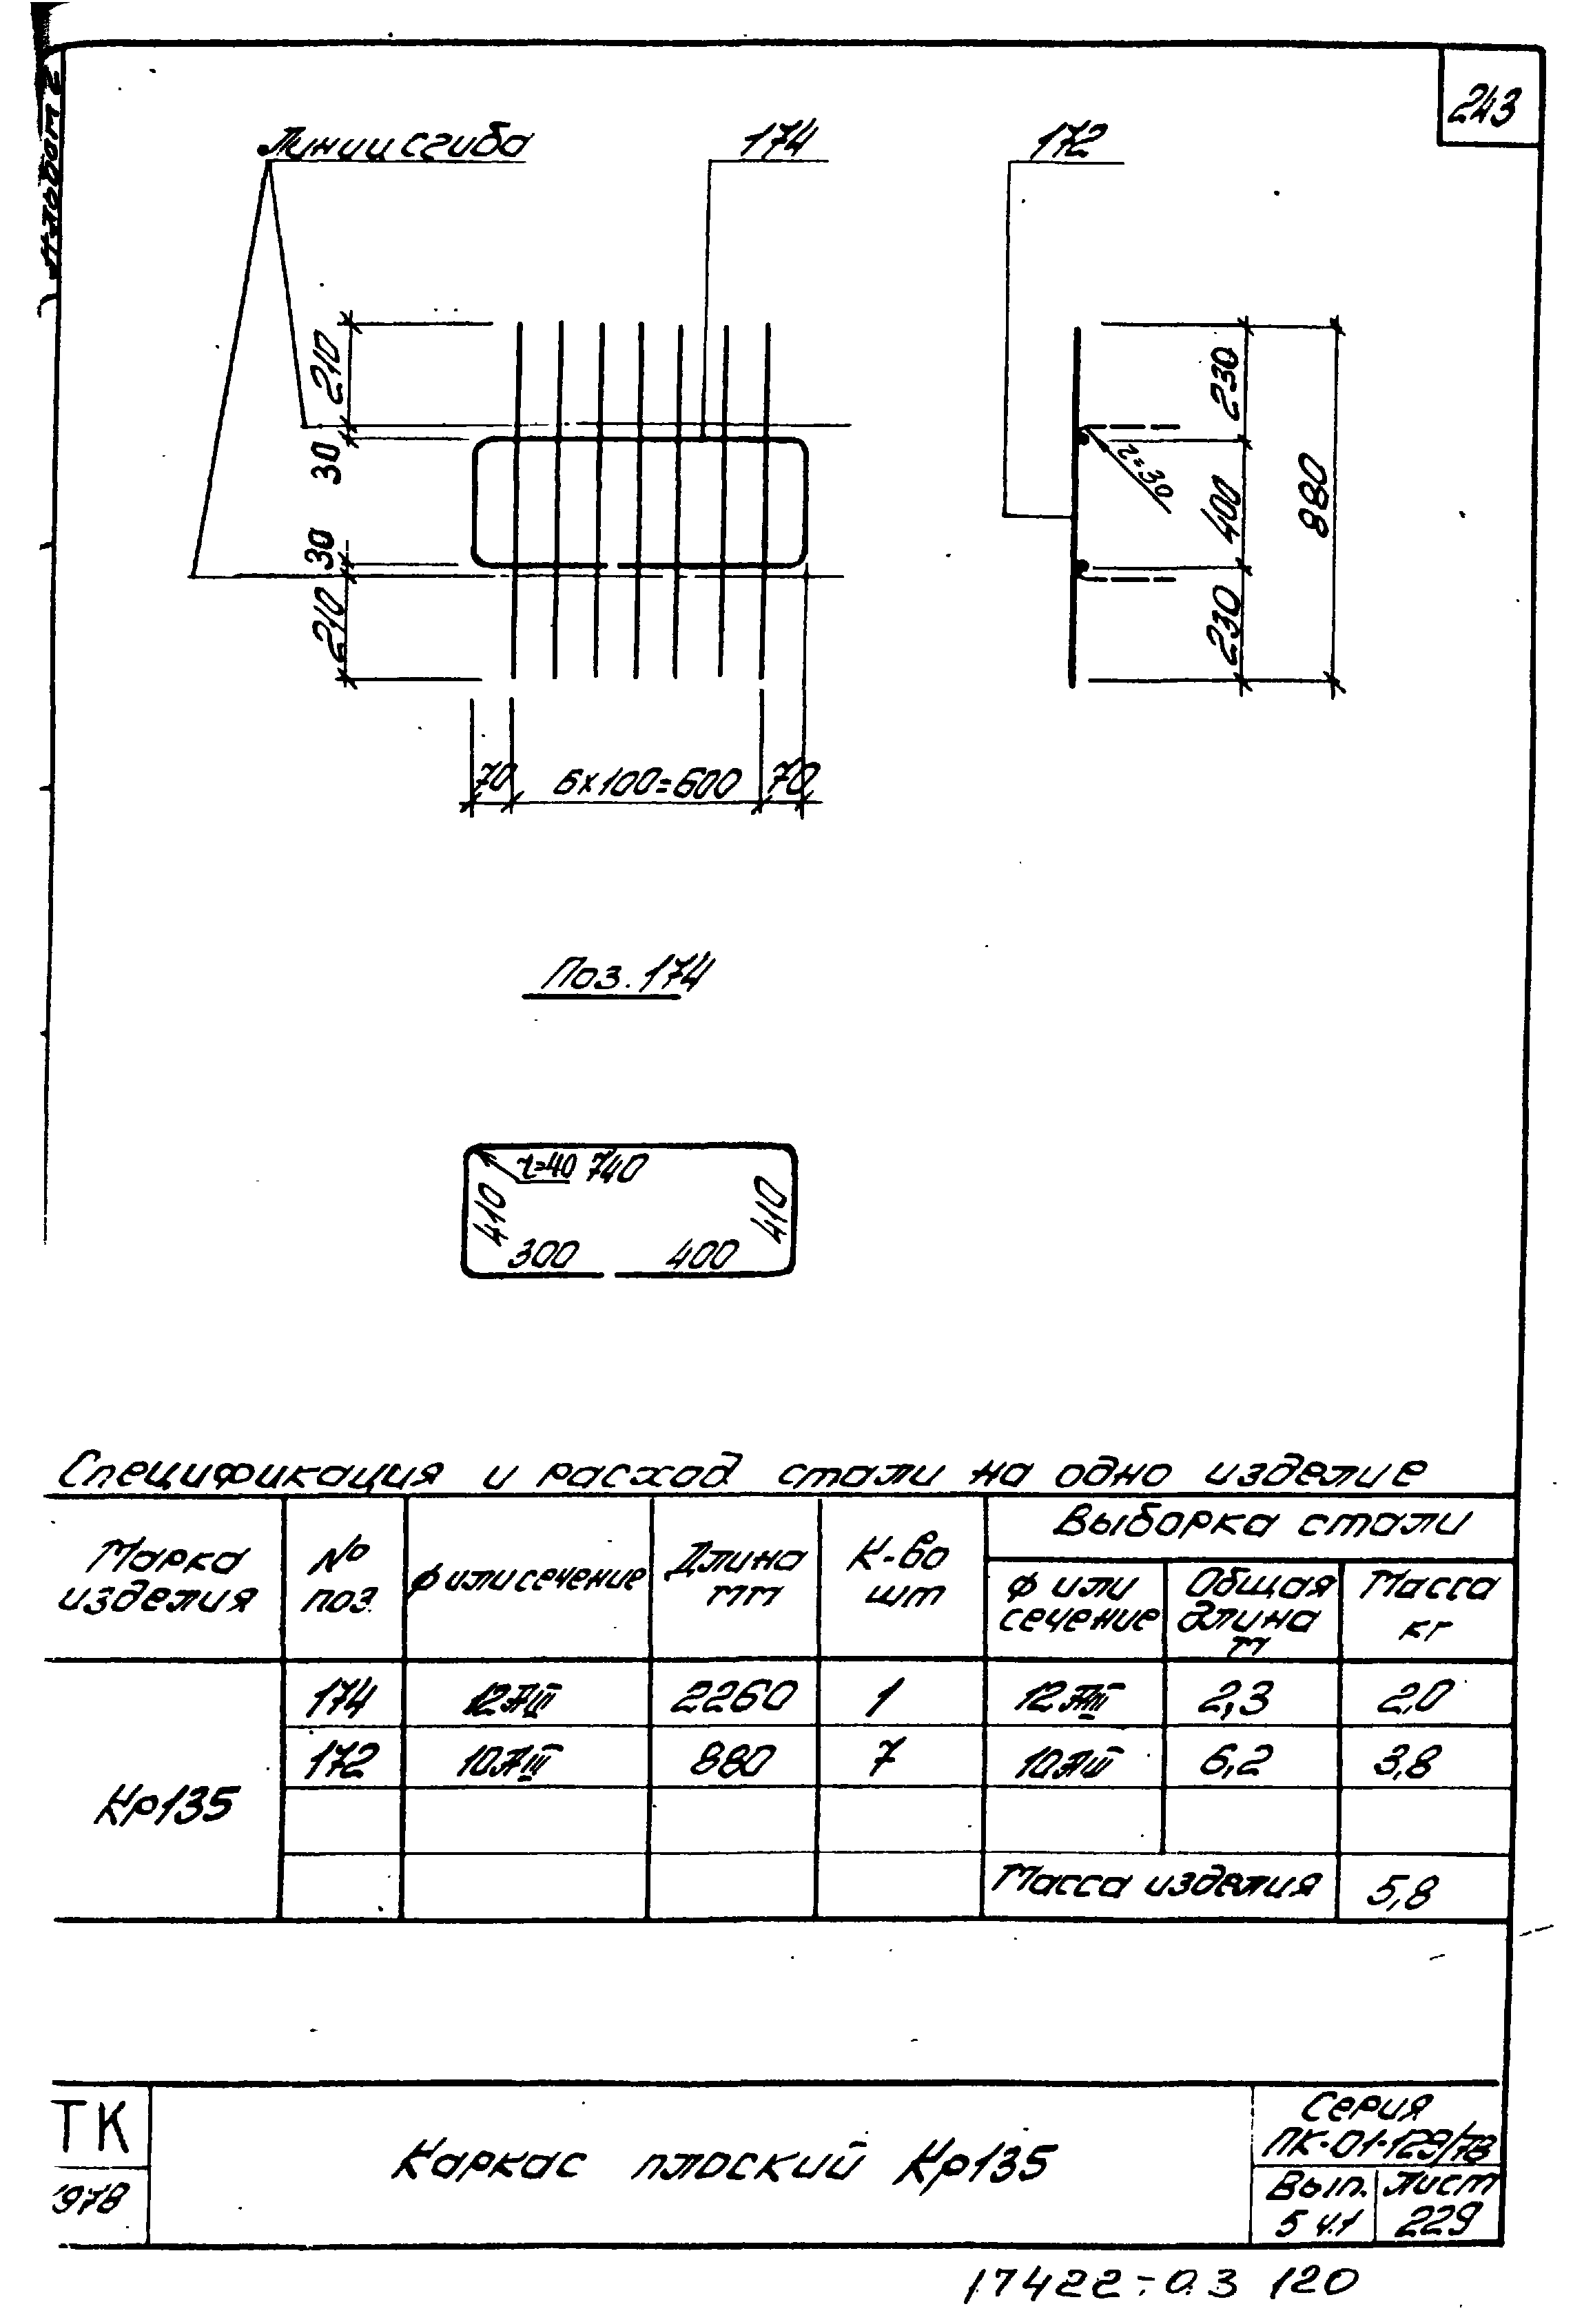 Альбом 2
243
Линии сгиба
174
172
210
30
30
210
230
400
230
880
r=30
70
6х100=600
70
Поз. 174
r=40
740
410
410
300
400
Спецификация и расход стали на одно изделие
Марка изделия
№ поз.
ф или сечение
Длина мм
К-во шт
Выборка стали
ф или сечение
Общая длина м
Масса кг
Кр135
174 12АIII 2260 1 12АIII 2,3 2,0
172 10АIII 880 7 10АIII 6,2 3,8
Масса изделия 5,8
ТК
1978
Каркас плоский Кр135
Серия
ПК-01-129/78
Вып. Лист
5 ч.1 229
17422-03 120